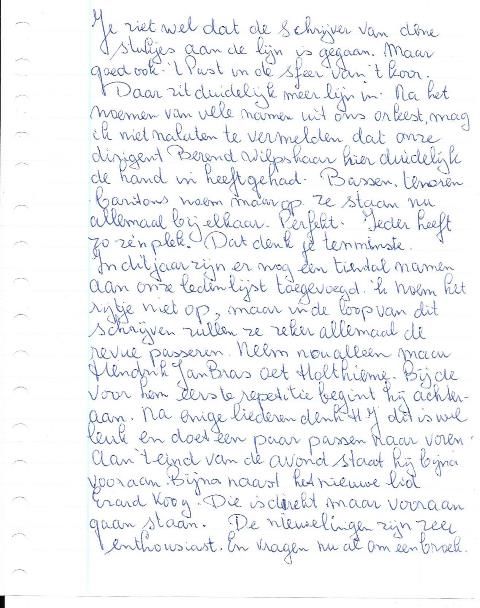 Je ziet wel dat de schrijver van deze
stukjes aan de lijn is gegaan. Maar
goed ook. 't Past in de sfeer van 't koor.
Daar zit duidelijk meer lijn in. Na het
noemen van vele namen uit ons orkest, mag
ik niet nalaten te vermelden dat onze
dirigent Berend Wilpshaar hier duidelijk
de hand in heeft gehad. Bassen, tenoren
baritons noem maar op ze staan nu
allemaal bij elkaar. Perfekt. Ieder heeft
zo z'n plek. Dat denk je tenminste.
In dit jaar zijn er nog een tiental namen
aan onze ledenlijst toegevoegd. 'k Noem het
rijtje niet op, maar in de loop van dit
schrijven zullen ze zeker allemaal de
revue passeren. Neem nou alleen maar
Hendrik Jan Bras oet Holthieme. Bij de
voor hem eerste repetitie begint hij achter-
aan. Na enige liederen denkt HJ dit is wel
leuk en doet een paar passen naar voren.
Aan 't eind van de avond staat hij bijna
vooraan. Bijna naast het nieuwe lid
Koog. Die is direkt maar vooraan
gaan staan. De nieuwelingen zijn zeer
enthousiast. En vragen nu al om een broek.